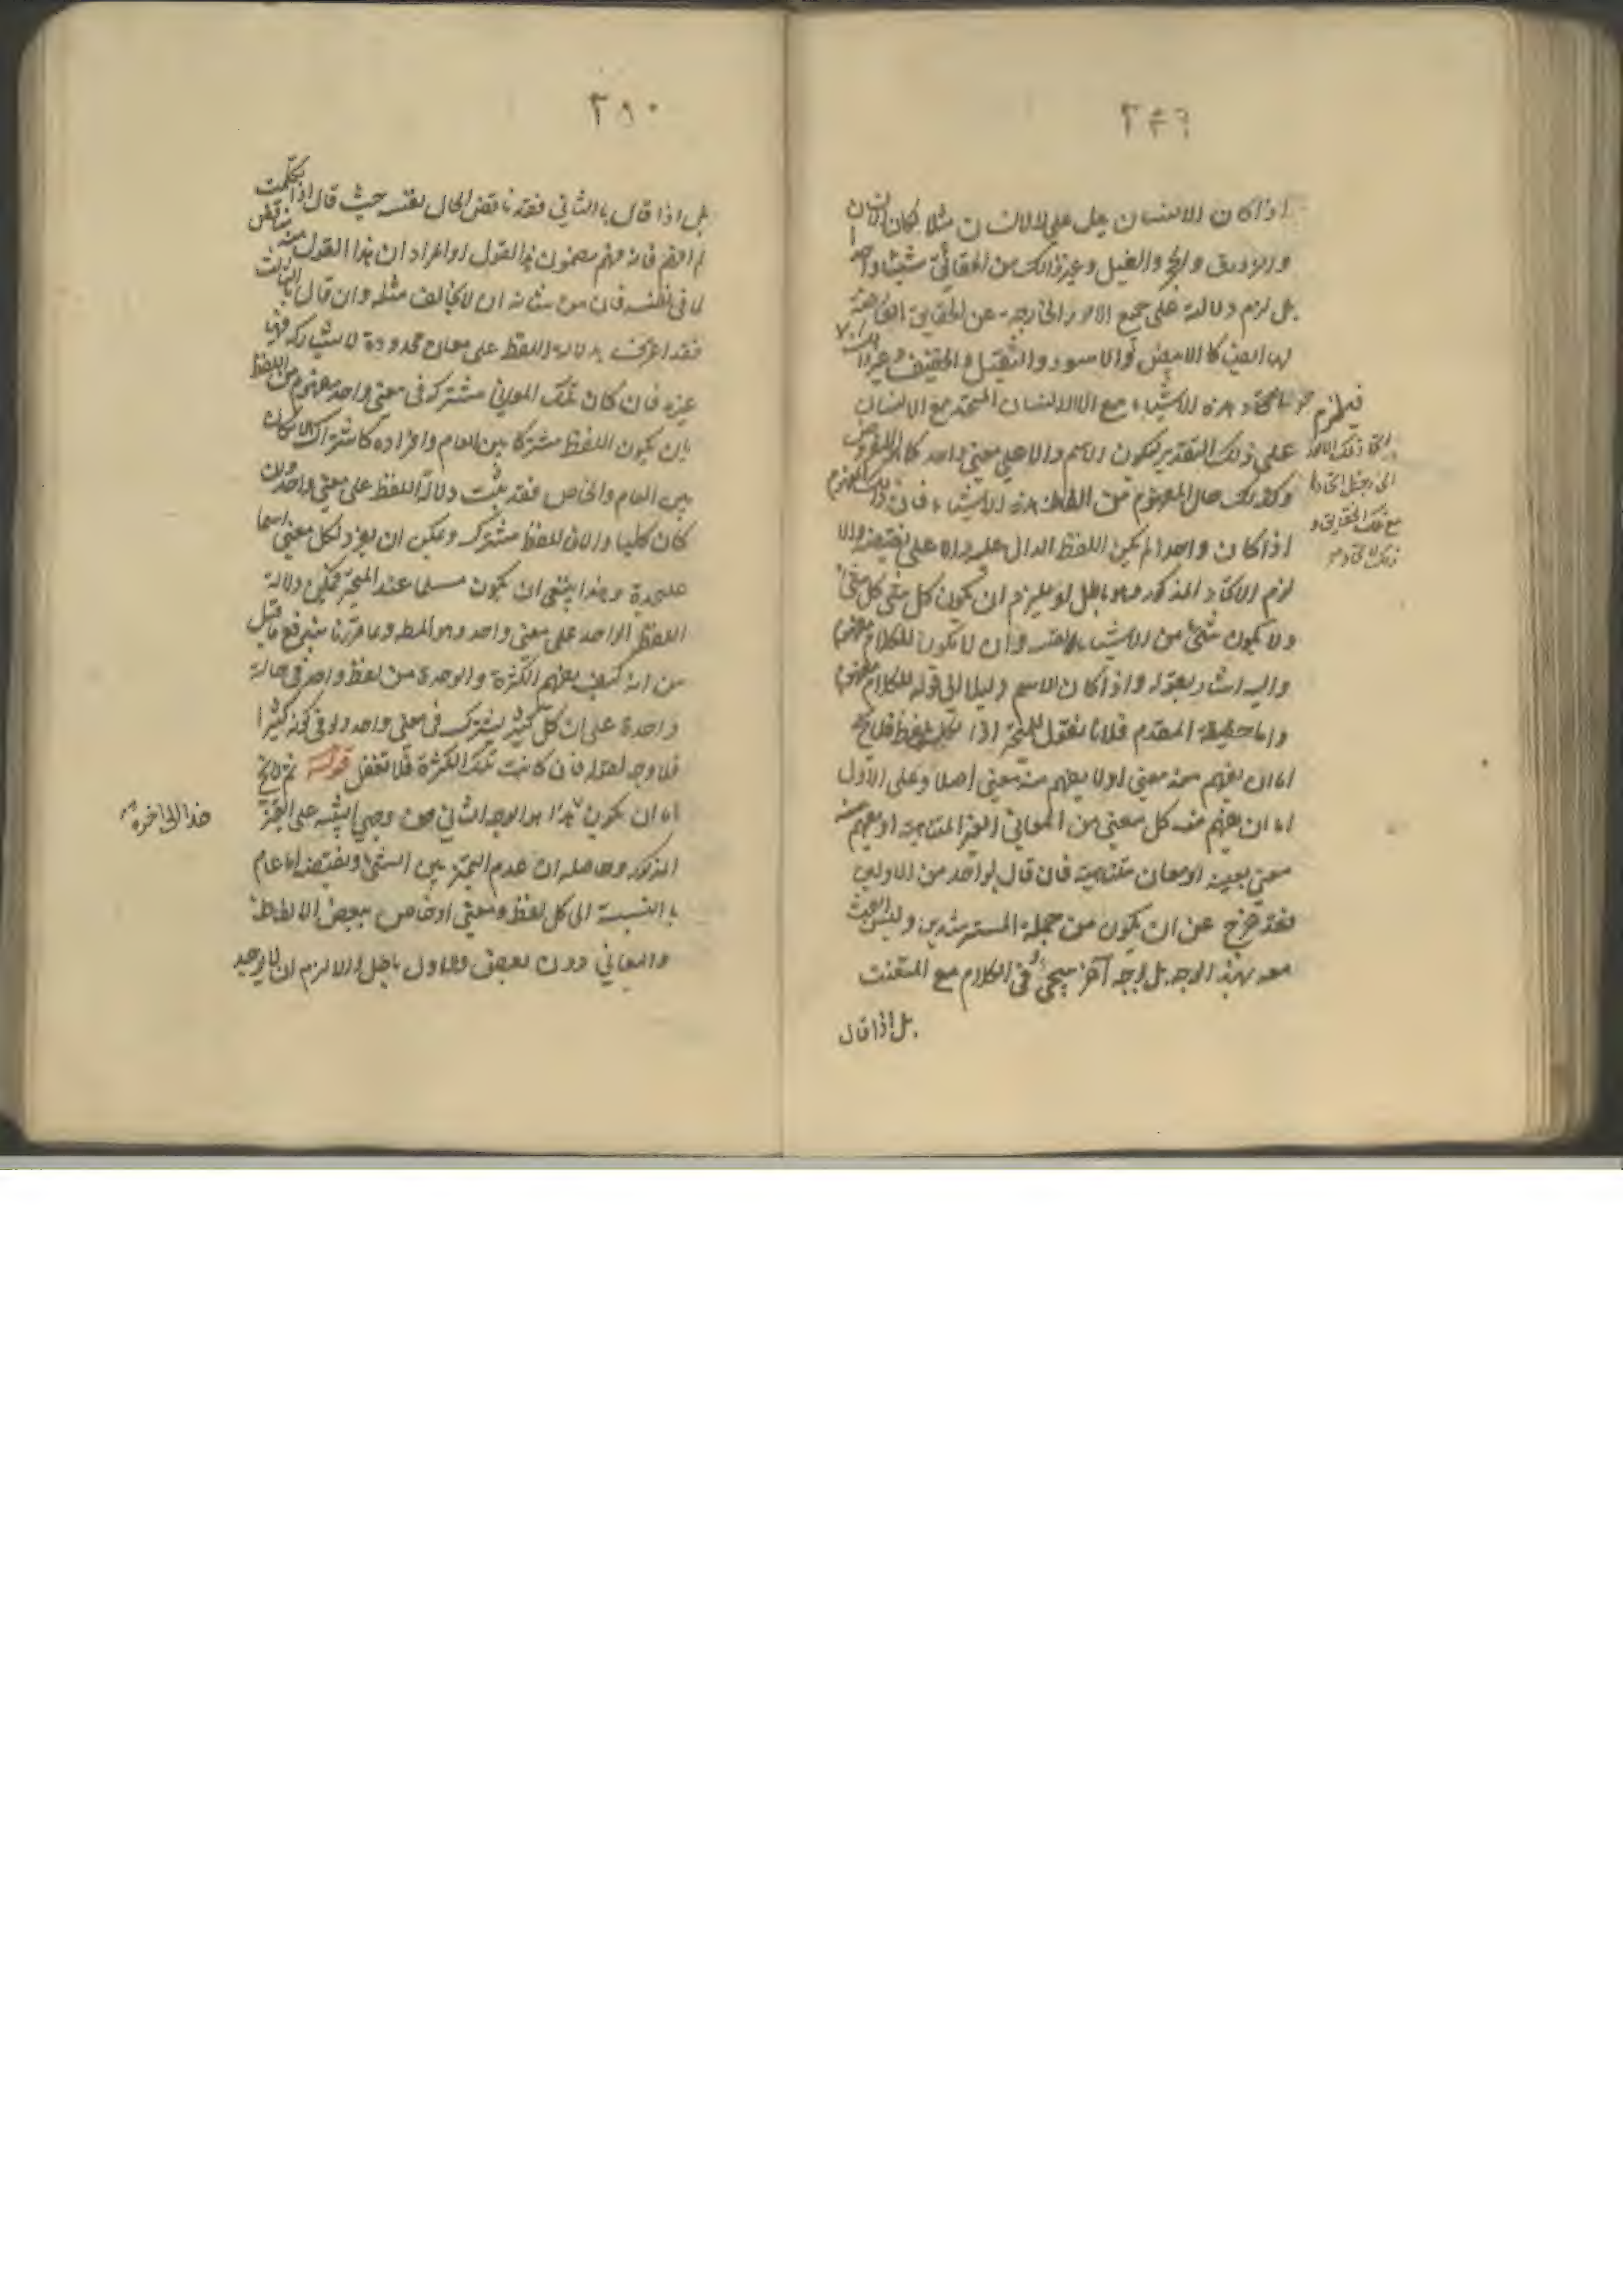 ٢٤٩
اذا كان الانسان يدل على اللاانسان مثلا كان الانسان
والزورق والحجر والفيل وغير ذلك من الحقائق شيئا واحدا
بل لزم دلالته على جميع الامور الخارجة عن الحقايق العارضة
لها ايضا كالابيض والاسود والثقيل والخفيف وغير ذلك
فيلزم اتحاد هذه الاشياء مع اللاانسان المتحد مع الانسان
على ذلك التقدير لكون الاسم دالا على معنى واحد
وكذلك حال المفهوم من الفاظ هذه الاشياء فان ذلك المفهوم
اذا كان واحدا لم يكن اللفظ الدال عليه دالا على نقيضه والا
لزم الاتحاد المذكور وهو باطل فيلزم ان يكون كل شئ كل شئ
ولا يكون شئ من الاشياء نفسه وان لا يكون للكلام مفهوم
واليه اشار بقوله واذا كان الاسم دليلا الى قوله للكلام مفهوم
واما حقيقة المقدم فلانا نقول للمتحير اذا تكلم بلفظ فلا يخ
اما ان يفهم منه معنى او لا يفهم منه معنى اصلا وعلى الاول
اما ان يفهم منه كل معنى من المعاني الغير المتناهية او يفهم منه
معنى بعينه او معان متناهية فان قال بواحد من الاولين
فقد خرج عن ان يكون من جملة المسترشدين وليس البحث
معه بهذا الوجه بل بوجه آخر سيجئ في الكلام مع المتعنت
بل اذا قال
مع تلك الحقايق و
٢٥٠
بل اذا قال بالثاني فقد ناقض الحال نفسه حيث قال اذا تكلمت
لم افهم فانه فهم مضمون هذا القول او المراد ان هذا القول منه مناقض
لما في نفسه فان من شانه ان لا يخالف مثله وان قال بالثالث
فقد اعترف بدلالة اللفظ على معان محدودة لا يشاركه فيها
غيره فان كان تلك المعاني مشتركة في معنى واحد مفهوم من اللفظ
بان يكون اللفظ مشتركا بين العام وافراده كاشتراك الامكان
بين العام والخاص فقد يثبت دلالة اللفظ على معنى واحد وان
كان كليا والا فاللفظ مشترك ويمكن ان يفرد لكل معنى اسما
عليحدة وهذا ينبغي ان يكون مسلما عند المتحير فيكون دلالة
اللفظ الواحد على معنى واحد وهو المط وبما قررنا يندفع ما قيل
من انه كيف يفهم الكثرة والوحدة من لفظ واحد في حالة
واحدة على ان كل كثير يشترك في معنى واحد ولو في كونه كثيرا
فلا وجه لقوله فان كانت تلك الكثرة فلا تغفل قوله ثم لا يخ
اما ان يكون هذا هو الوجه الثاني من وجهي التنبيه على المتحير
المذكور وحاصله ان عدم التميز بين الشئ ونقيضه اما عام
بالنسبة الى كل لفظ ومعنى او خاص ببعض الالفاظ
والمعاني دون بعض والاول باطل والا لزم ان لا يوجد
هذا الى آخره